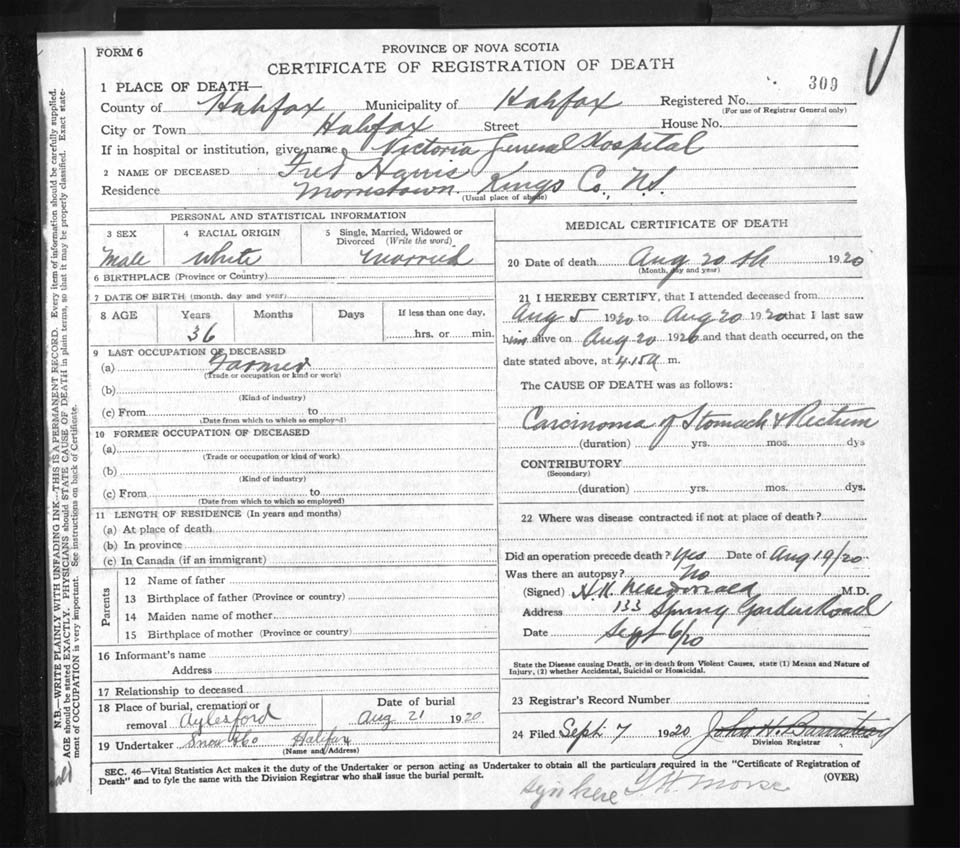 FORM 6
PROVINCE OF NOVA SCOTIA
CERTIFICATE OF REGISTRATION OF DEATH
309
1 PLACE OF DEATH—
County of Halifax Municipality of Halifax Registered No.
(For use of Registrar General only)
City or Town Halifax Street House No.
If in hospital or institution, give name Victoria General Hospital
2 NAME OF DECEASED Fred Harris
Residence Morristown Kings Co., N.S.
(Usual place of abode)
PERSONAL AND STATISTICAL INFORMATION
3 SEX 4 RACIAL ORIGIN 5 Single, Married, Widowed or Divorced (Write the word)
Male White Married
6 BIRTHPLACE (Province or Country)
7 DATE OF BIRTH (month, day and year)
8 AGE Years Months Days If less than one day,
36 hrs. or min.
9 LAST OCCUPATION OF DECEASED
(a) Farmer
(Trade or occupation or kind or work)
(b)
(Kind of industry)
(c) From to
(Date from which to which so employed)
10 FORMER OCCUPATION OF DECEASED
(a)
(Trade or occupation or kind of work)
(b)
(Kind of industry)
(c) From to
(Date from which to which so employed)
11 LENGTH OF RESIDENCE (In years and months)
(a) At place of death
(b) In province
(c) In Canada (if an immigrant)
Parents
12 Name of father
13 Birthplace of father (Province or country)
14 Maiden name of mother
15 Birthplace of mother (Province or country)
16 Informant's name
Address
17 Relationship to deceased
18 Place of burial, cremation or Date of burial
removal Aylesford Aug 21 1920
19 Undertaker Snow &Co Halifax
(Name and Address)
MEDICAL CERTIFICATE OF DEATH
20 Date of death Aug 20 th 1920
(Month, day and year)
21 I HEREBY CERTIFY, that I attended deceased from
Aug 5 1920 to Aug 20 1920 that I last saw
him alive on Aug 20 1920 and that death occurred, on the
date stated above, at 4.15 a m.
The CAUSE OF DEATH was as follows:
Carcinoma of Stomach & Rectum
(duration) yrs. mos. dys
CONTRIBUTORY
(Secondary)
(duration) yrs. mos. dys.
22 Where was disease contracted if not at place of death?
Did an operation precede death? Yes Date of Aug 19/20
Was there an autopsy? No
(Signed) H.K. Macdonald M.D.
Address 133 Spring Garden Road
Date Sept 6/20
State the Disease causing Death, or in death from Violent Causes, state (1) Means and Nature of
Injury, (2) whether Accidental, Suicidal or Homicidal.
23 Registrar's Record Number
24 Filed Sept. 7 1920 John H.
Division Registrar
SEC. 46—Vital Statistics Act makes it the duty of the Undertaker or person acting as Undertaker to obtain all the particulars required in the "Certificate of Registration of
Death" and to fyle the same with the Division Registrar who shall issue the burial permit. (OVER)
sign here Morse
N.B.—WRITE PLAINLY WITH UNFADING INK—THIS IS A PERMANENT RECORD. Every item of information should be carefully supplied.
AGE should be stated EXACTLY. PHYSICIANS should STATE CAUSE OF DEATH in plain terms, so that it may be properly classified. Exact state-
ment of OCCUPATION is very important. See instructions on back of Certificate.